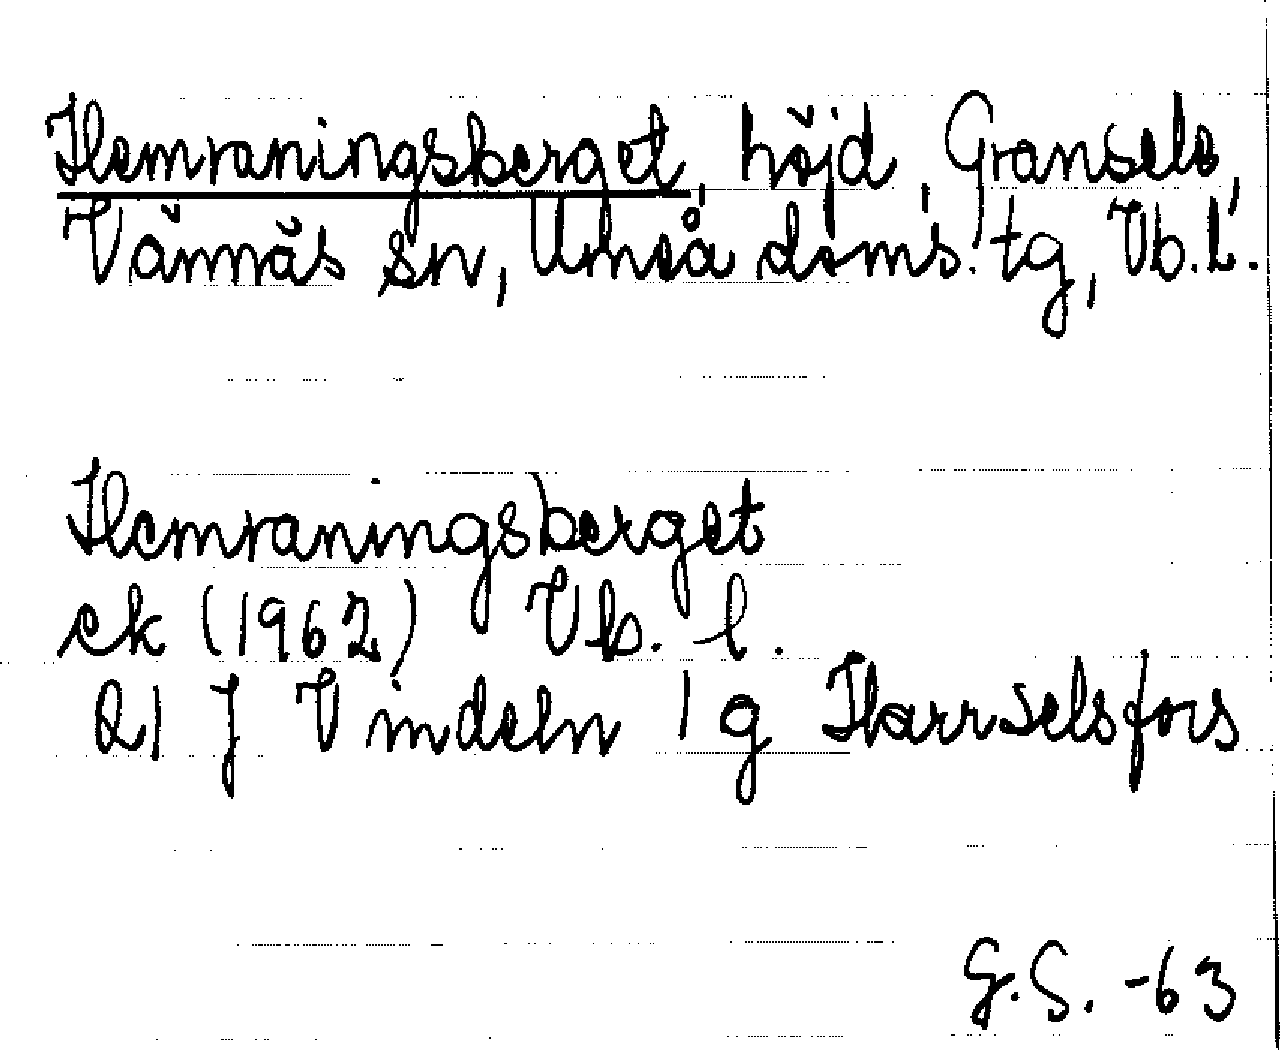 Hemraningsberget, höjd, Gransele,
Vännäs sn, Umeå doms. tg, Vb. l.
Hemraningsberget
ek (1962) Vb. l.
21 J Vindeln 1 g Harrselsfors
G.S. -63